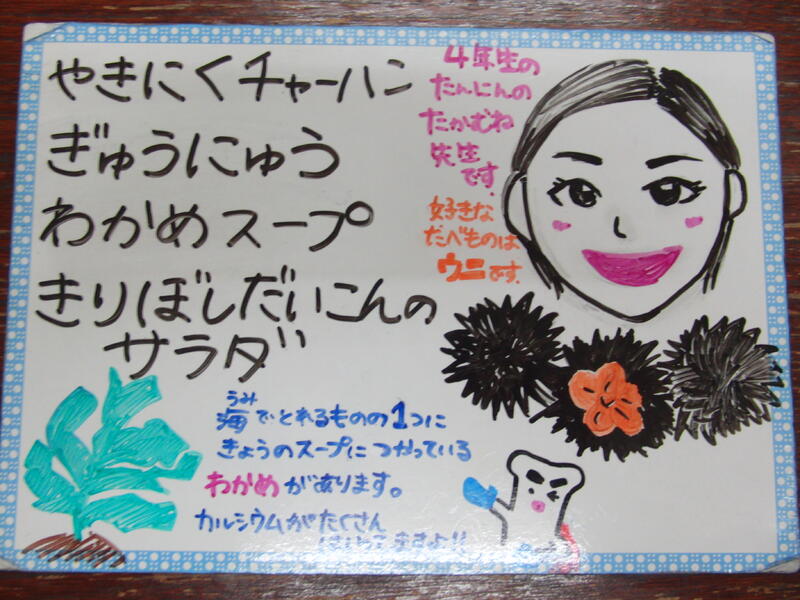 やきにくチャーハン
ぎゅうにゅう
わかめスープ
きりぼしだいこんの
サラダ
4年生の
たんにんの
たかむね
先生
です。
好きな
たべものは
ウニです。
うみ
海でとれるものの1つに
きょうのスープにつかっている
わかめがあります。
カルシウムがたくさん
はいってますよ!!